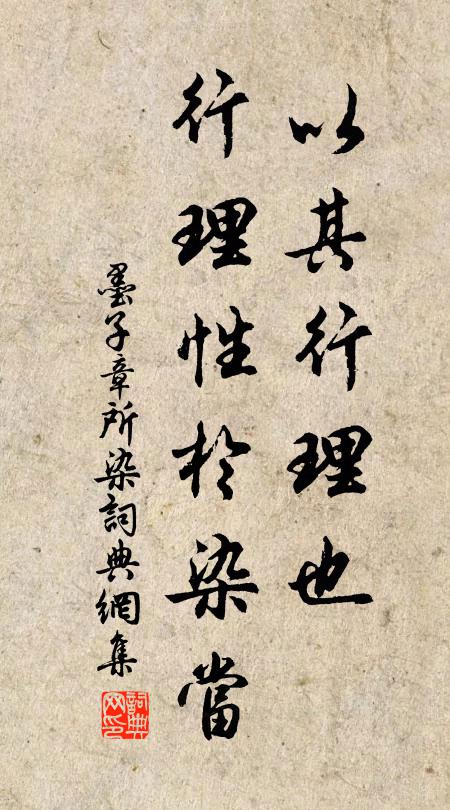 以其行理也
行理性於染當
墨子章所染詞典網集
詞典网印